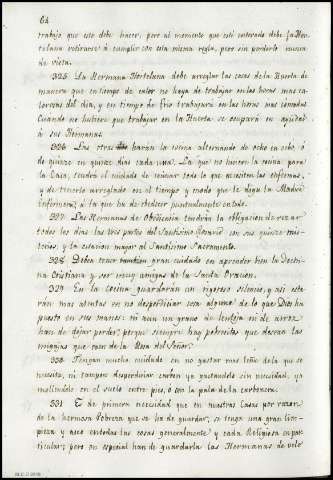 64
trabajo que este debe hacer; pero al momento que esté enterado debe la Hor-
telana retirarse á cumplir con esta misma regla, pero sin perderlo nunca
de vista.
325. La Hermana Hortelana debe arreglar las cosas de la Huerta de
manera que en tiempo de calor no haya de trabajar en las horas mas ca-
lorosas del dia, y en tiempo de frio trabajará en las horas mas
Cuando no tuviere que trabajar en la Huerta se ocupará en ayudar
á sus Hermanas.
326. Las otras harán la cocina alternando de ocho en ocho, ó
de quince en quince dias cada una. La que no hiciere la cocina para
la Casa, tendrá el cuidado de cocinar todo lo que necesiten las enfermas,
y de tenerlo arreglado en el tiempo y modo que le diga la Madre
Enfermera, á la que ha de obedecer puntualmente en todo.
327. Las Hermanas de Obediencia tendrán la obligacion de rezar
todos los dias las tres partes del Santísimo Rosario con sus quince mis-
terios, y la estacion mayor al Santísimo Sacramento.
328. Deben tener tambien gran cuidado en aprender bien la Doctri-
na Cristiana y ser muy amigas de la Santa Oracion.
329. En la cocina guardarán un rigoroso silencio, y asi esta-
rán mas atentas en no desperdiciar cosa alguna de lo que Dios ha
puesto en sus manos: ni aun un grano de lenteja ni de arroz
han de dejar perder; porque siempre hay pobrecitos que desean las
miggajas que caen de la Mesa del Señor.
330. Tengan mucho cuidado en no gastar mas leña de la que se
necesita, ni tampoco desperdiciar carbon ya gastandolo sin necesidad, ya
moliendolo en el suelo entre pies, ó con la pala de la carbonera.
331. Es de primera necesidad que en nuestras Casas por razon
de la hermosa Pobreza que se ha de guardar, se tenga una gran lim-
pieza y aseo en todas las cosas generalmente y cada Religiosa en par-
ticular; pero en especial han de guardarla las Hermanas de velo